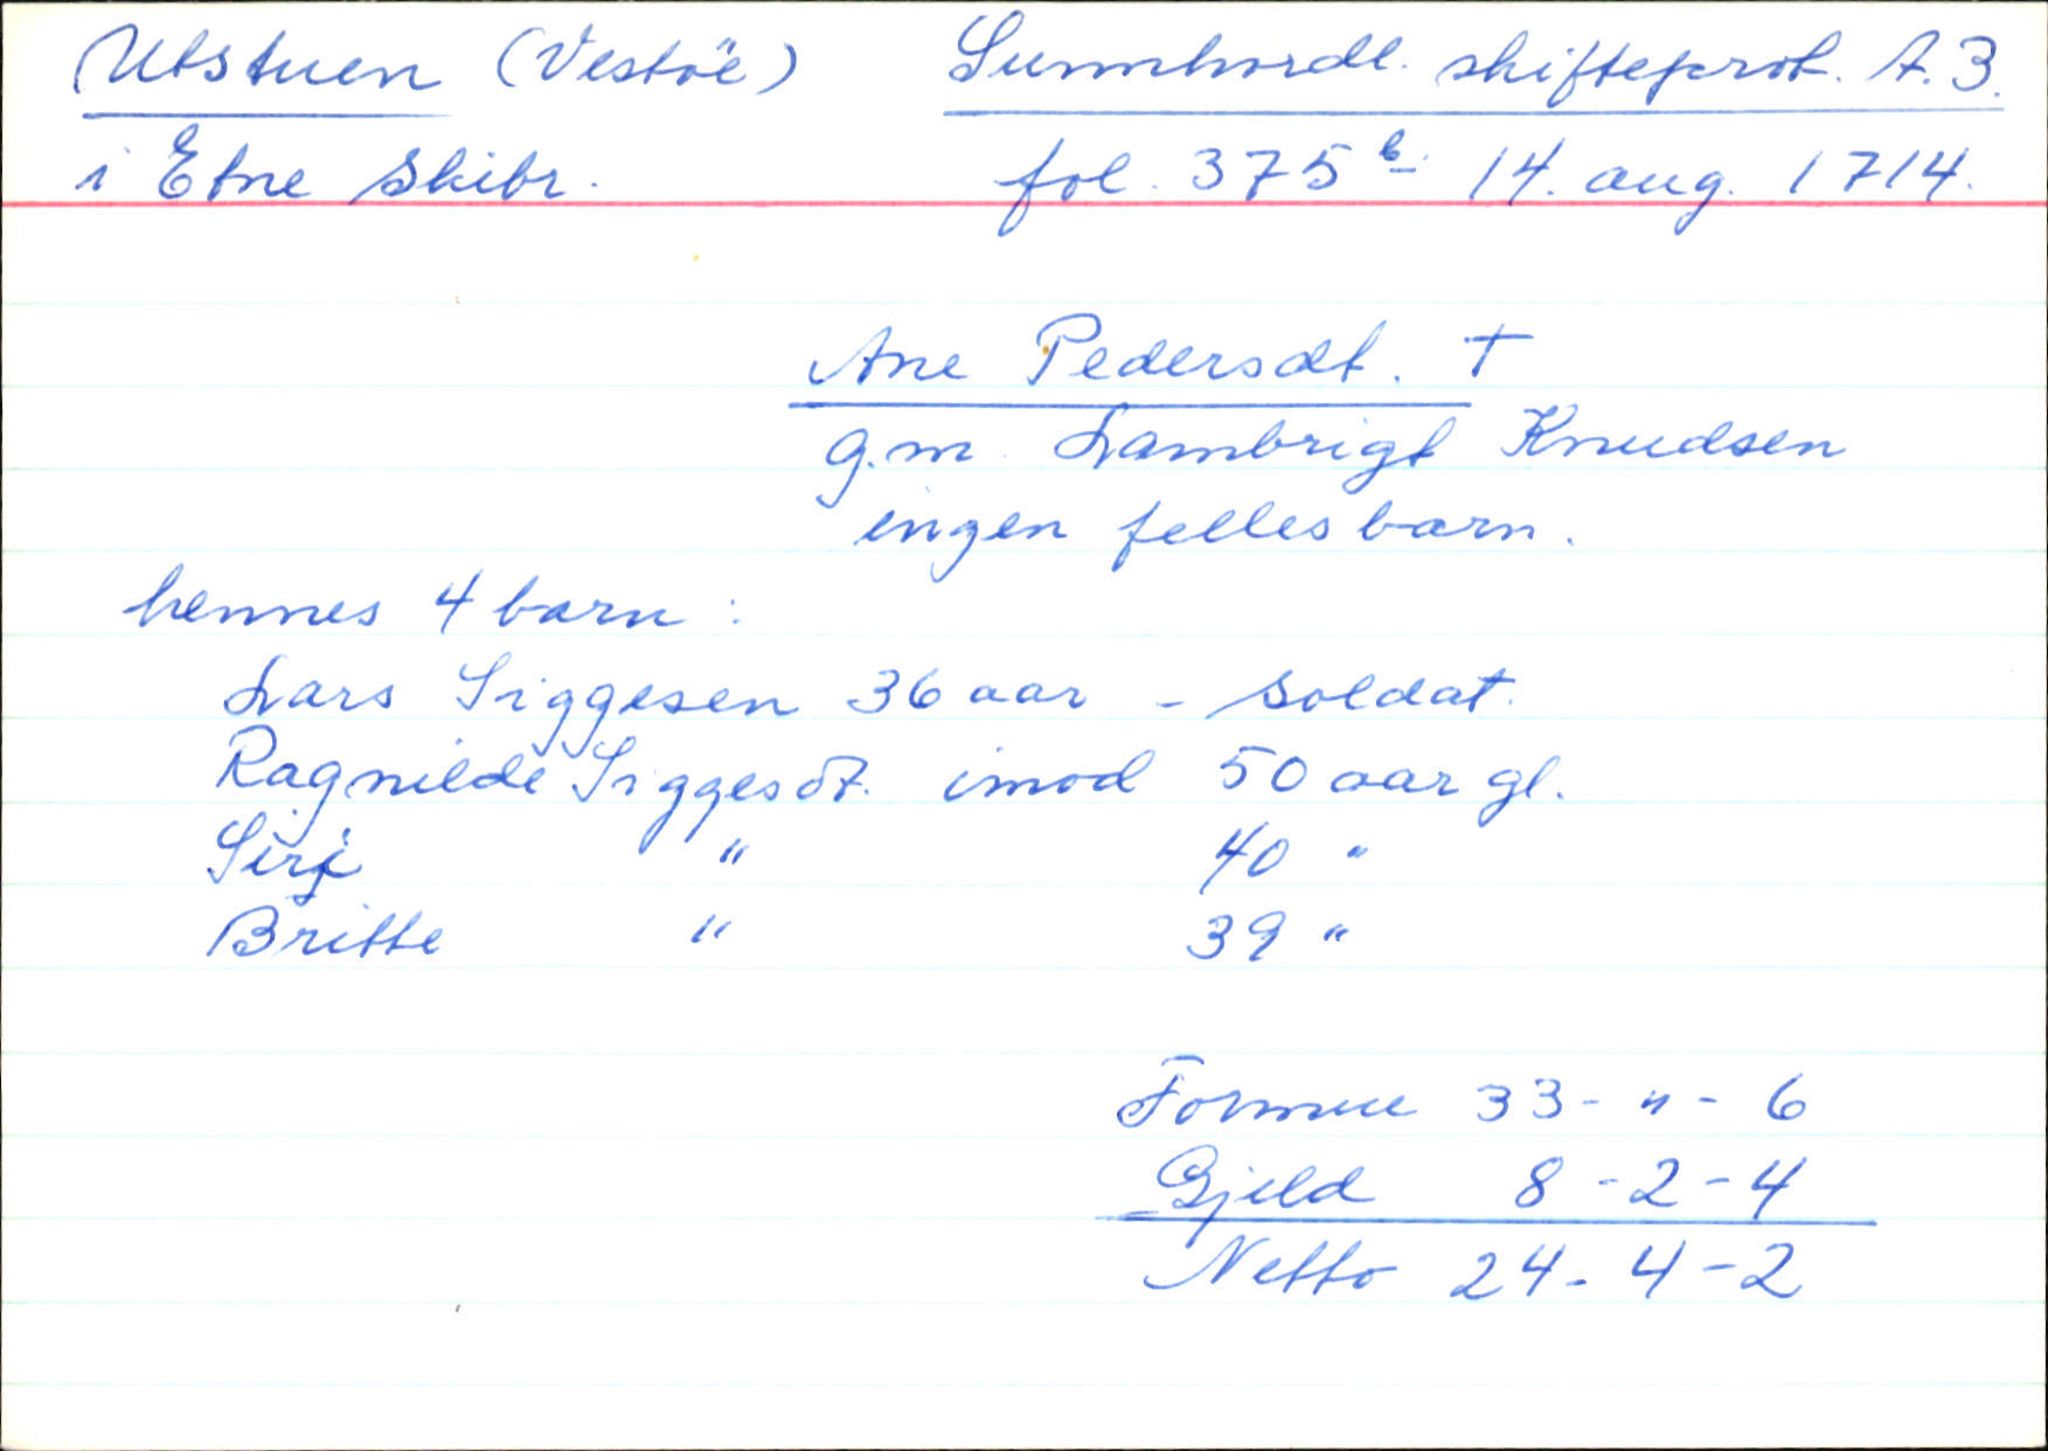 Utstuen (Vestöe) Sunnhordl. skifteprot. A.3.
i Etne Skibr. fol. 375 b. 14. aug. 1714.
Ane Pedersdt. †
g.m. Lambrigt Knudsen
ingen felles barn.
hennes 4 barn:
Lars Siggesen 36 aar - soldat.
Ragnilde Siggesdt. imod 50 aar gl.
Siri " 40 "
Britte " 39 "
Formue 33 - " - 6
Gjeld 8 - 2 - 4
Netto 24 - 4 - 2